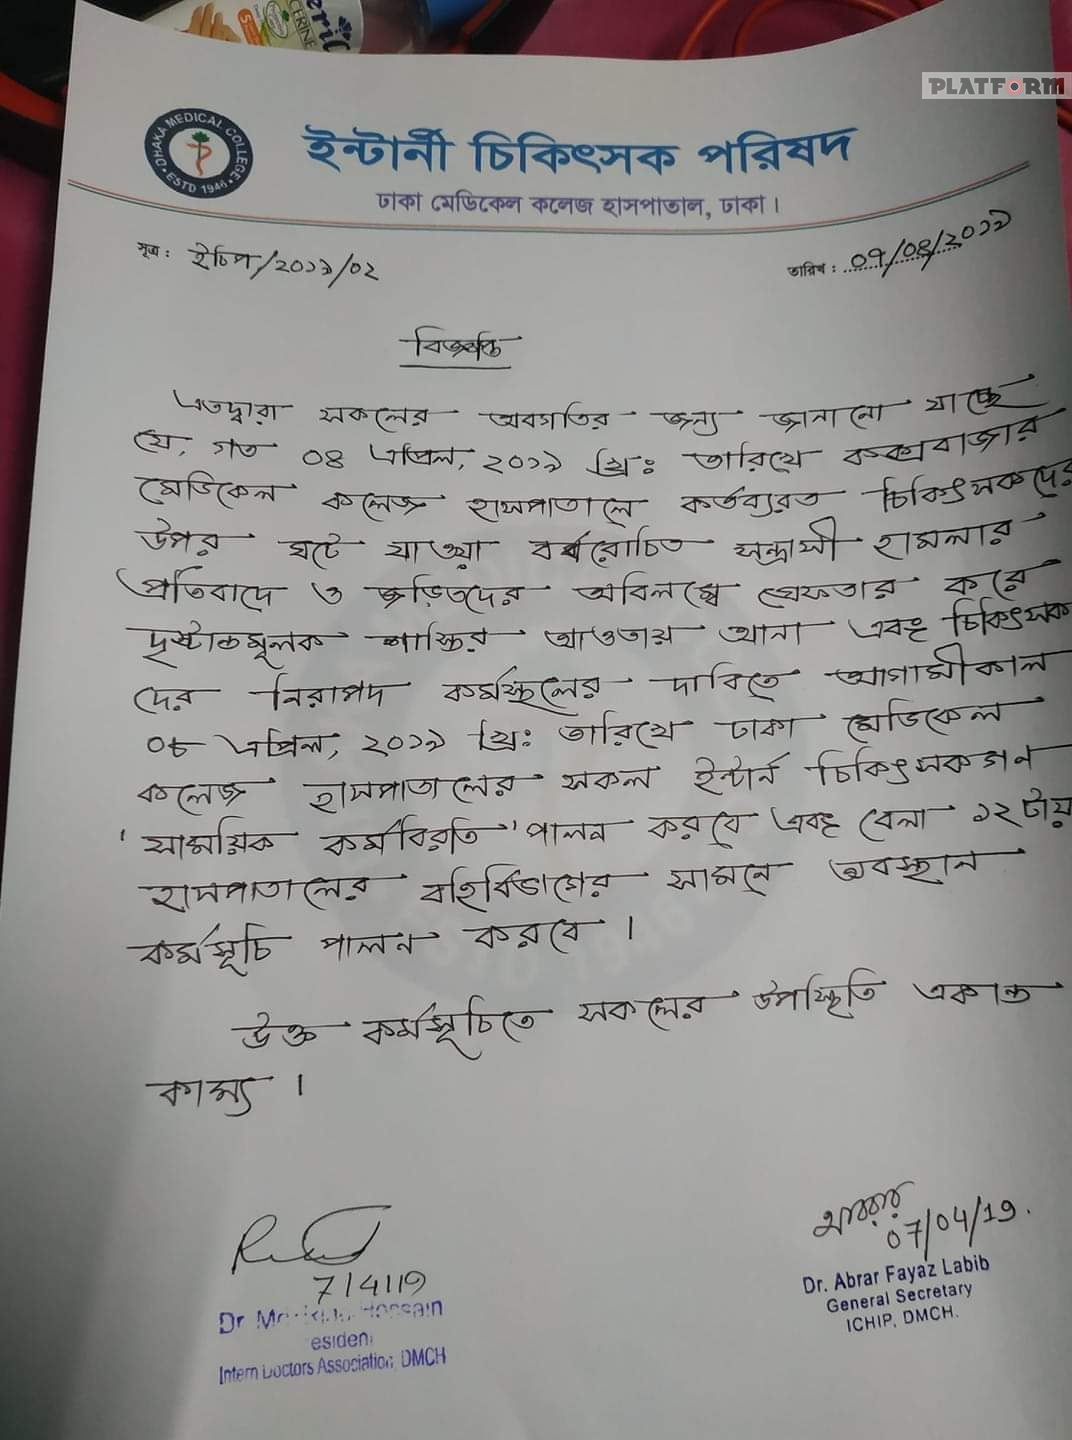 eril
CERINE
PLATFORM
DHAKA MEDICAL COLLEGE
ESTD 1946
ইন্টার্নী চিকিৎসক পরিষদ
ঢাকা মেডিকেল কলেজ হাসপাতাল, ঢাকা।
সূত্র: ইচিপ/২০১৯/০২
তারিখ: ০৭/০৪/২০১৯
বিজ্ঞপ্তি
এতদ্বারা সকলের অবগতির জন্য জানানো যাচ্ছে
যে, গত ০৪ এপ্রিল, ২০১৯ খ্রি: তারিখে কক্সবাজার
মেডিকেল কলেজ হাসপাতালে কর্তব্যরত চিকিৎসকদের
উপর ঘটে যাওয়া বর্বরোচিত সন্ত্রাসী হামলার
প্রতিবাদে ও জড়িতদের অবিলম্বে গ্রেফতার করে
দৃষ্টান্তমূলক শাস্তির আওতায় আনা এবং চিকিৎসক
দের নিরাপদ কর্মস্থলের দাবিতে আগামীকাল
০৮ এপ্রিল, ২০১৯ খ্রি: তারিখে ঢাকা মেডিকেল
কলেজ হাসপাতালের সকল ইন্টার্ন চিকিৎসকগণ
'সাময়িক কর্মবিরতি' পালন করবে এবং বেলা ১২টায়
হাসপাতালের বহির্বিভাগের সামনে অবস্থান
কর্মসূচি পালন করবে।
উক্ত কর্মসূচিতে সকলের উপস্থিতি একান্ত
কাম্য।
7/4/19
Dr. Hossain
esiden
Intern Doctors Association, DMCH
আবরার
07/04/19.
Dr. Abrar Fayaz Labib
General Secretary
ICHIP, DMCH.